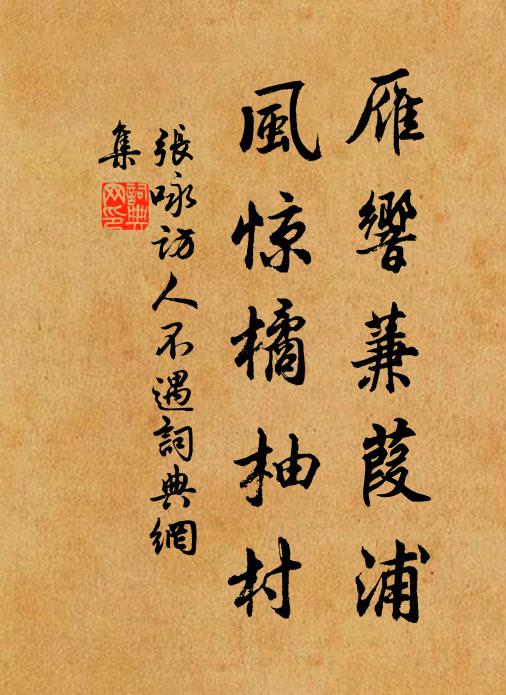 雁響蒹葭浦
風惊橘柚村
張咏訪人不遇詞典網
集
詞典
网印